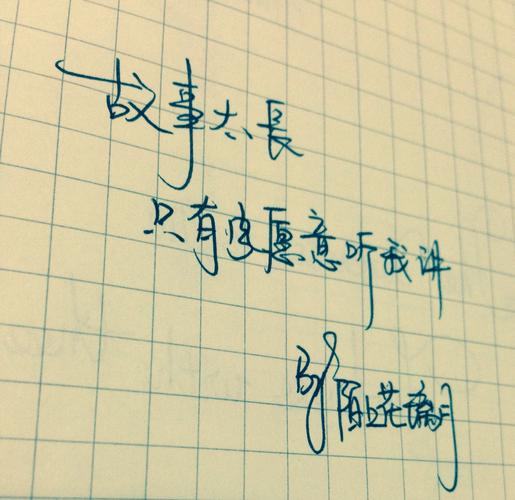 故事太長
只有字愿意听我讲
By 陌上花漪月